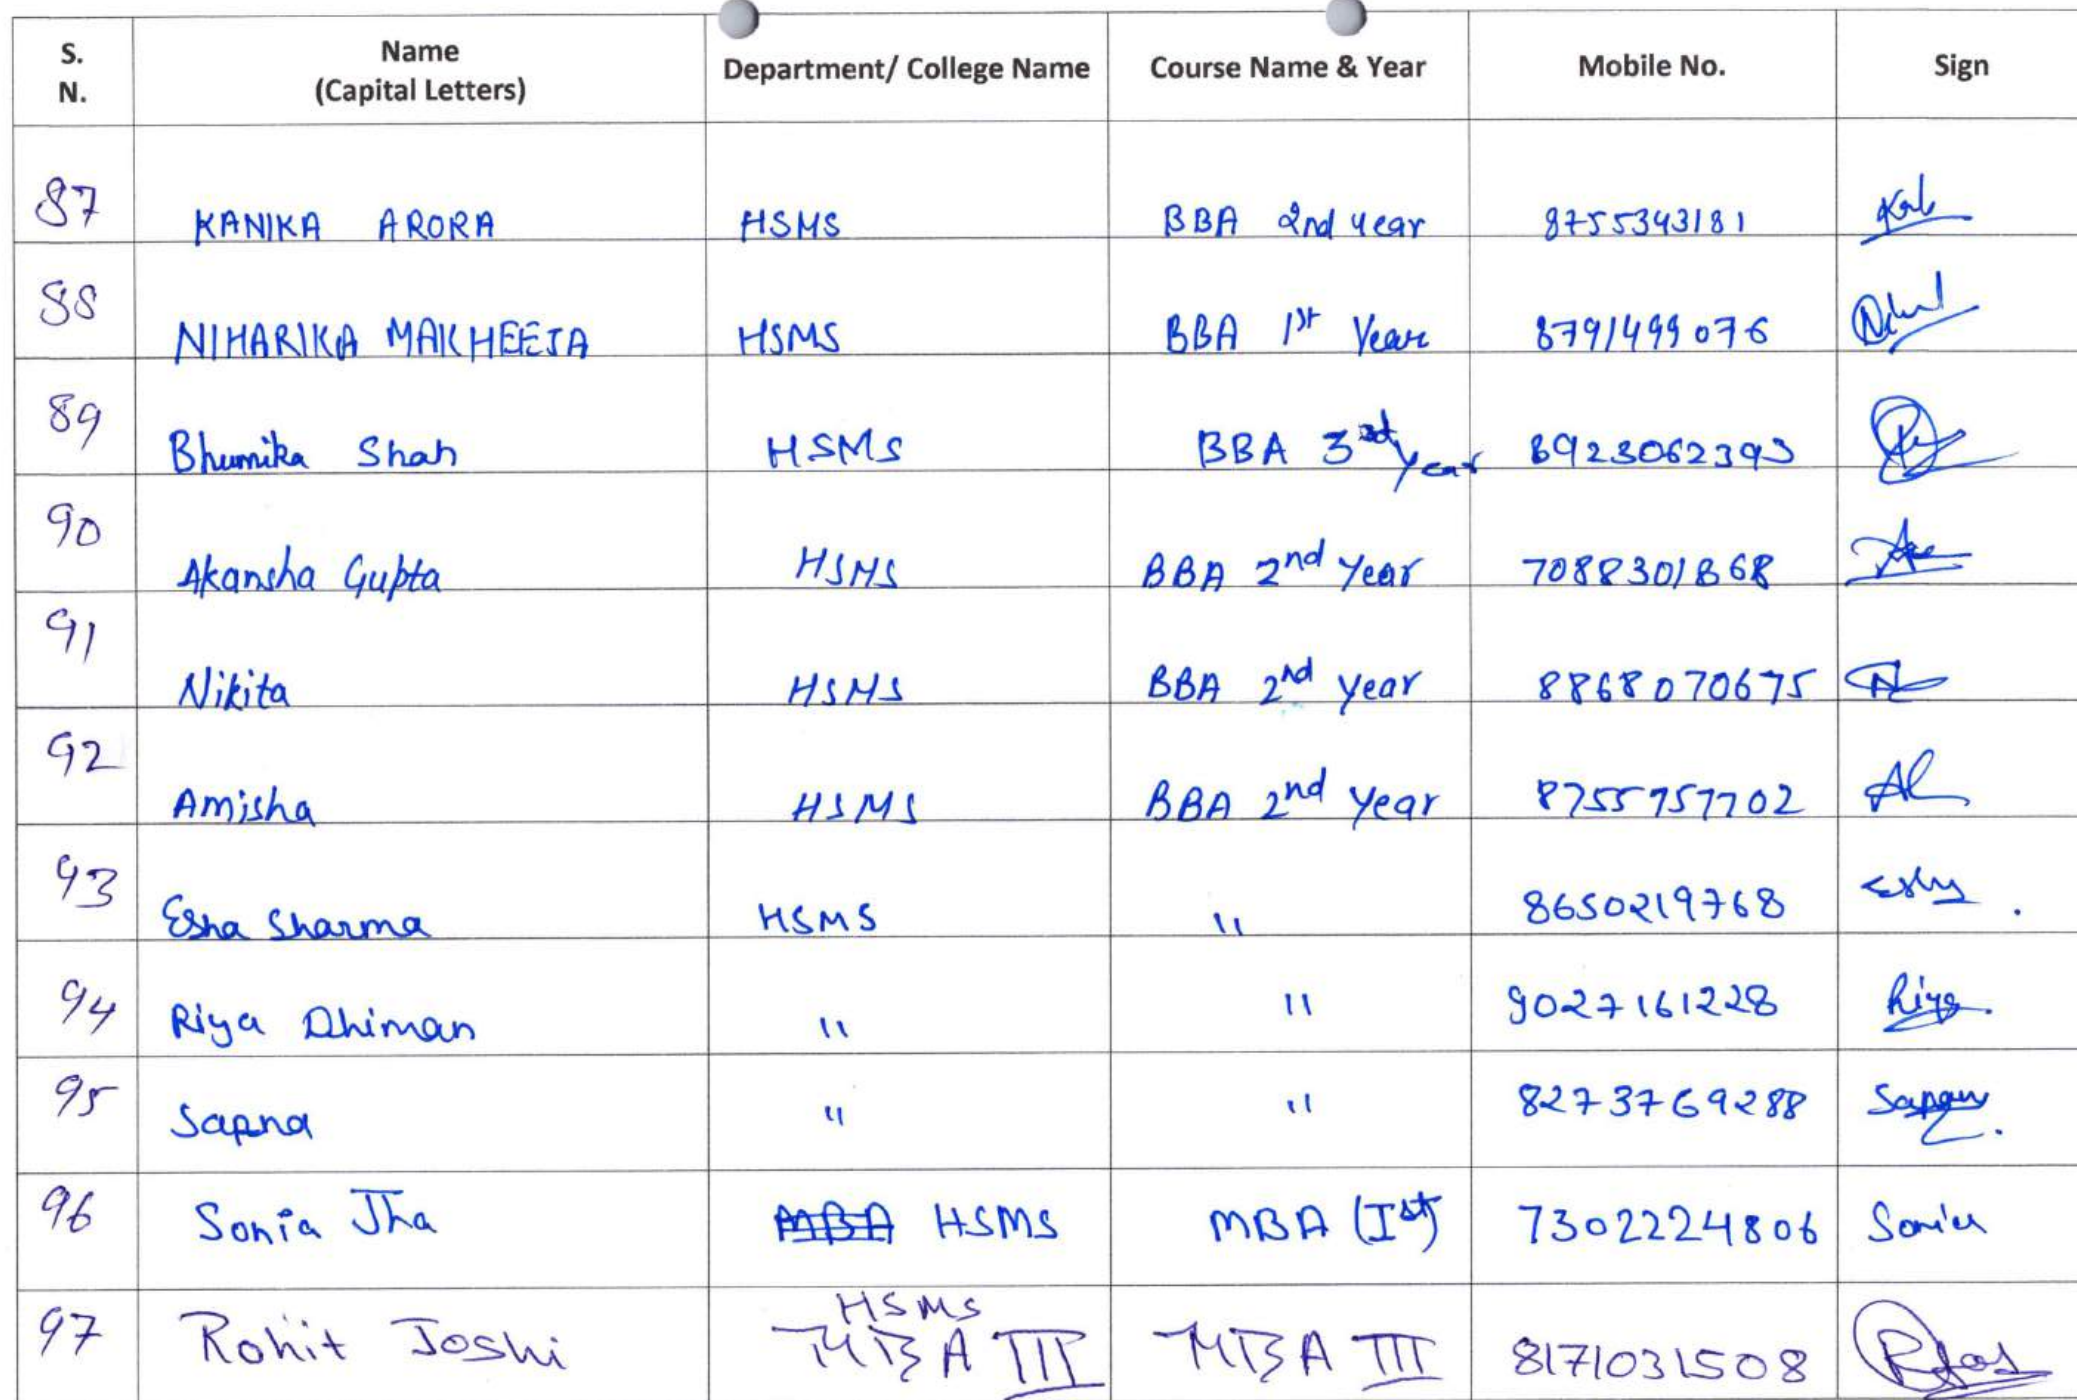 S. N. Name (Capital Letters) Department/ College Name Course Name & Year Mobile No. Sign
87 KANIKA ARORA HSMS BBA 2nd year 8755343181
88 NIHARIKA MAKHEEJA HSMS BBA 1st Year 8791499076
89 Bhumika Shah HSMS BBA 3rd year 8923062393
90 Akansha Gupta HSMS BBA 2nd Year 7088301868
91 Nikita HSMS BBA 2nd year 8868070675
92 Amisha HSMS BBA 2nd year 8755757702
93 Esha Sharma HSMS " 8650219768
94 Riya Dhiman " " 9027161228 Riya
95 Sapna " " 8273769288 Sapna
96 Sonia Jha MBA HSMS MBA (Ist) 7302224806 Sonia
97 Rohit Joshi HSMS MBA III MBA III 8171031508